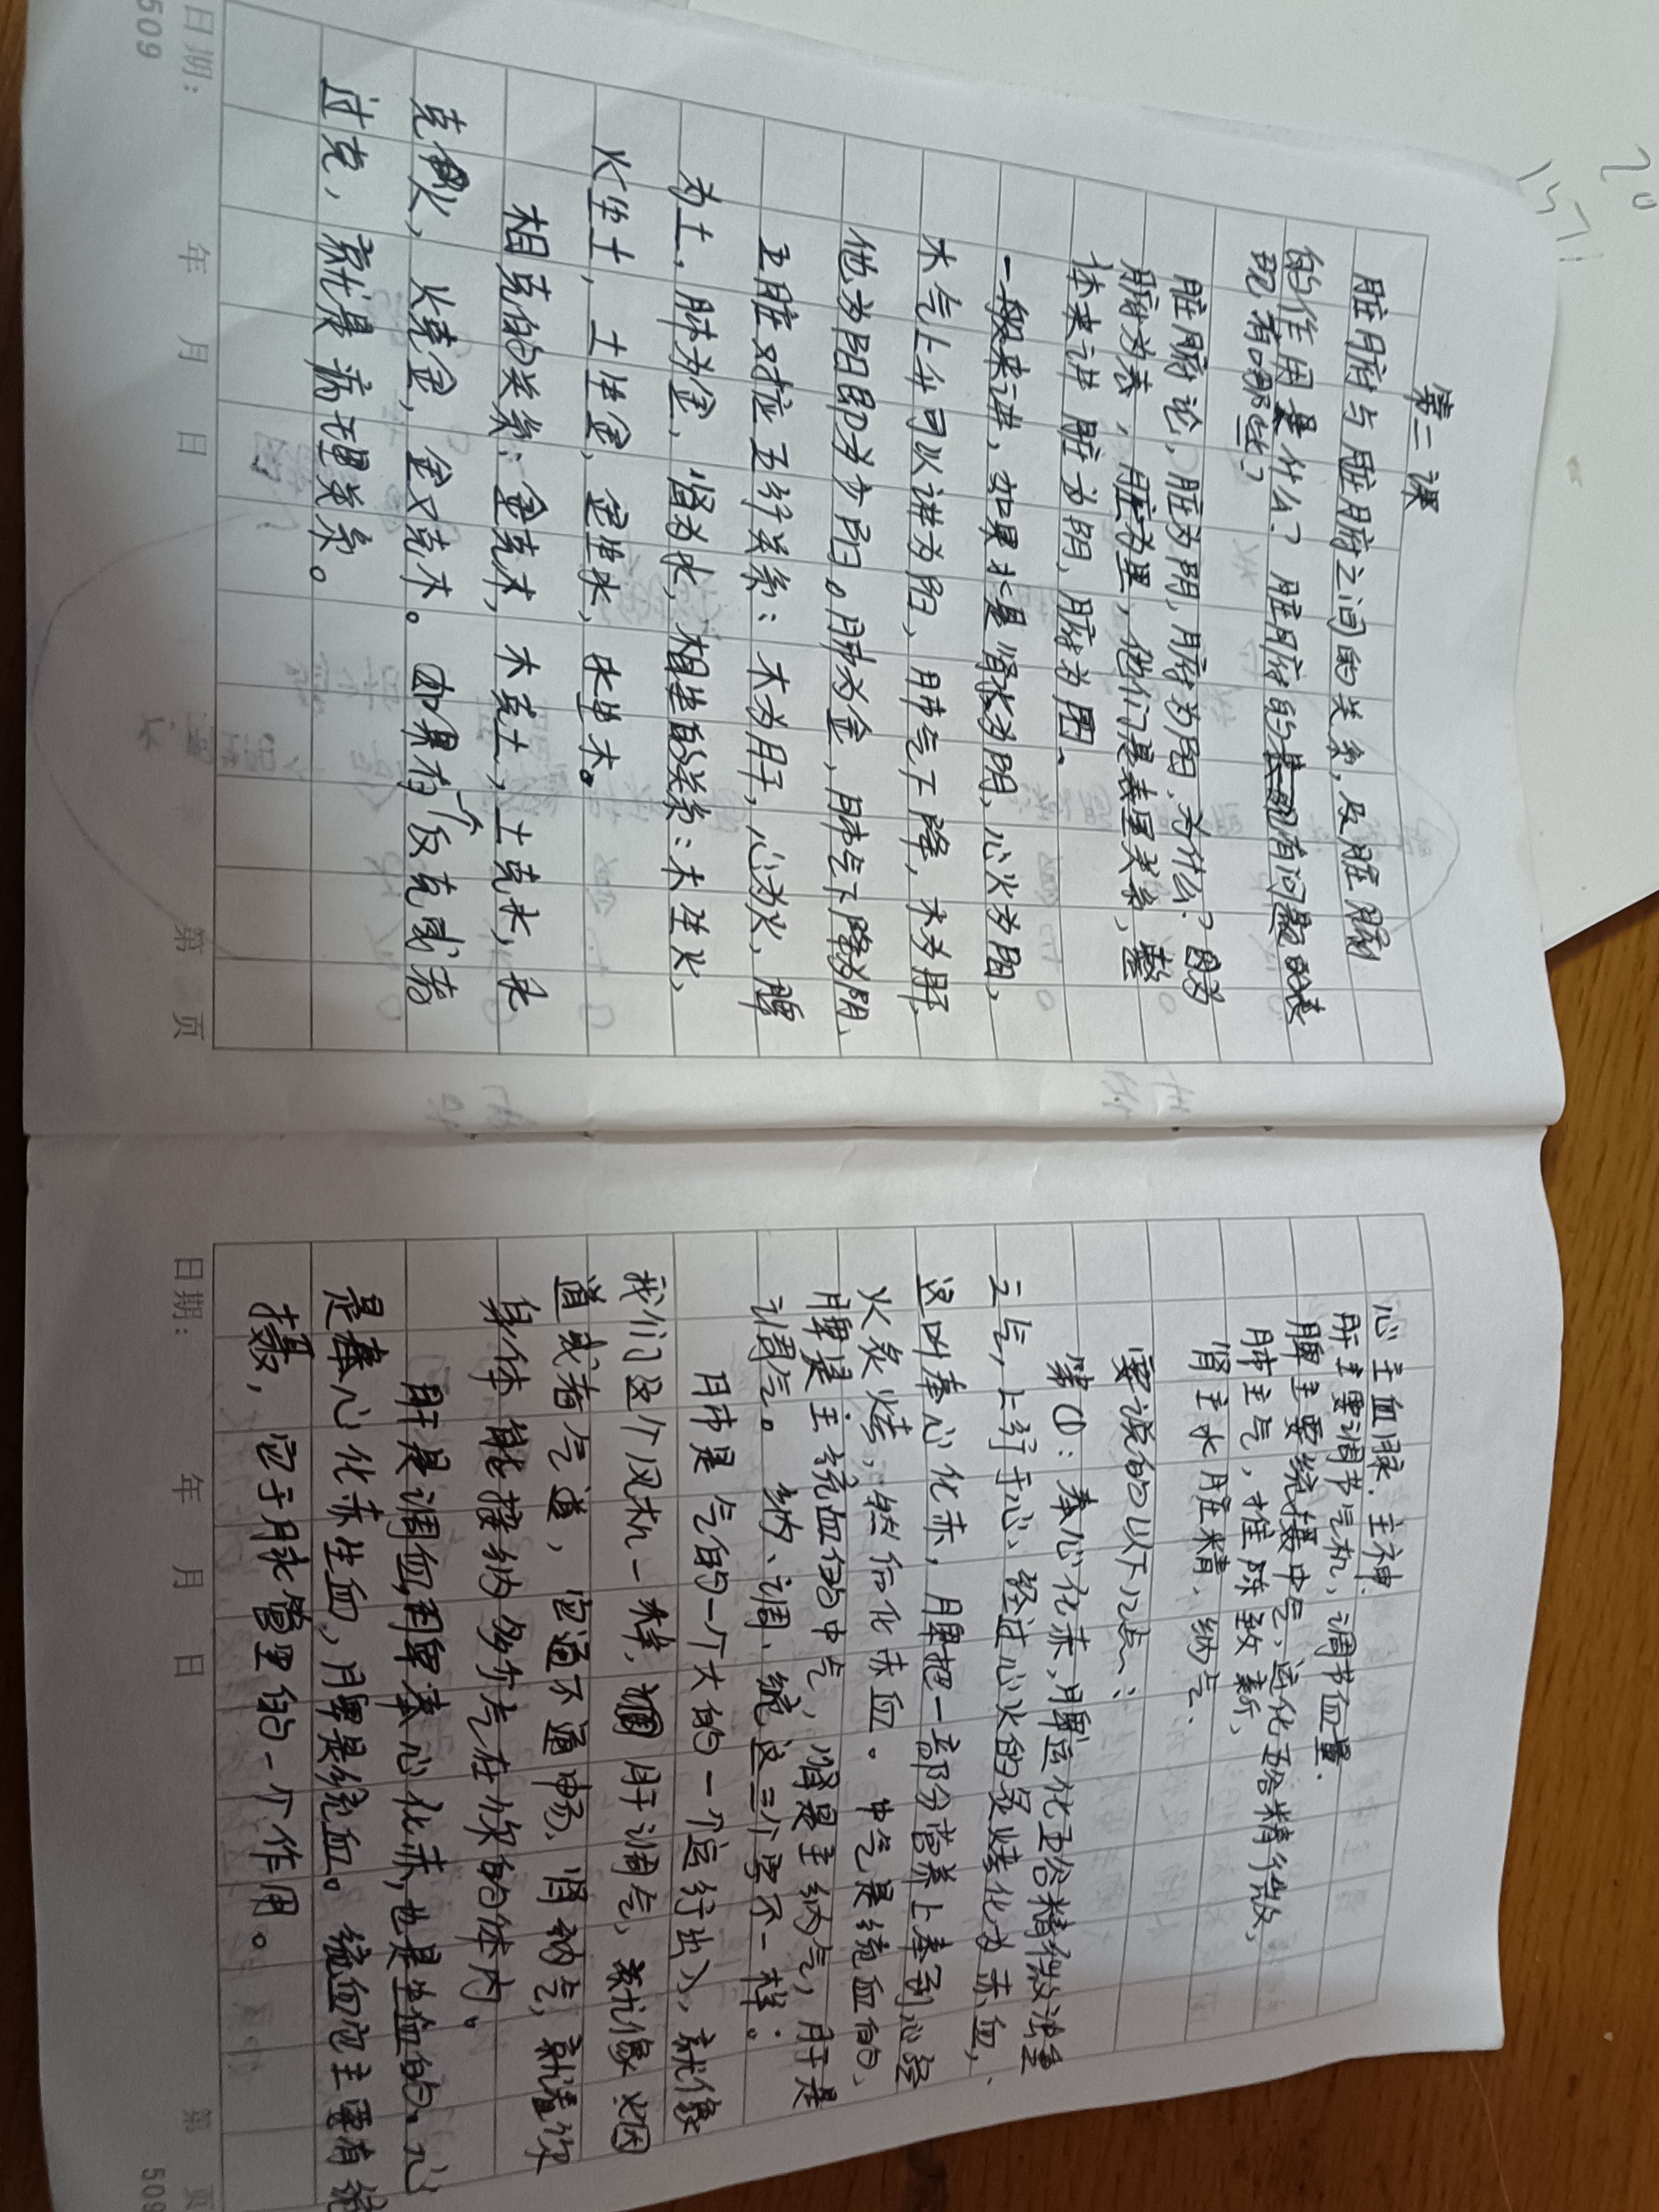 第二课
脏腑与脏腑之间的关系,及脏腑
的作用是什么?脏腑的有问题的表
现有哪些?
脏腑论,脏为阴,腑为阳,为什么?因为
腑为表,脏为里,他们是表里关系,整
体来讲脏为阴,腑为阳。
一般来讲,如果水是肾水为阴,心火为阳,
木气上升可以讲为阳,肺气下降,木为肝,
他为阳即为少阳。肺为金,肺气下降为阴,
五脏对应五行关系:木为肝,心为火,脾
为土,肺为金,肾为水,相生的关系:木生火,
火生土,土生金,金生水,水生木。
相克的关系:金克木,木克土,土克水,水
克火,火克金,金又克木。如果有个反克或者
过克,就是病理关系。
日期: 年 月 日 第 页
509
心主血脉.主神.
肝主要调节气机,调节血量.
脾主要统摄中气,运化五谷精微,
肺主气,推陈致新,
肾主水脏精,纳气.
要说的以下几点:
第①:奉心化赤,脾运化五谷精微注重
之气,上行于心,经过心火的炙烤化为赤血,
这叫奉心化赤,脾把一部分营养上奉到心经
火炙烤,然后化赤血。中气是统血的,
脾是主统血的中气,肾是主纳气,肝是
调气。纳、调、统这三个字不一样。
肺是气的一个大的一个运行出入,就像
我们这个风机一样,肝调气,就像烟
道或者气道,它通不通畅,肾纳气,就是你
身体能接纳多少气在你的体内。
肝是调血,脾奉心化赤,也是生血的.心
是奉心化赤生血,脾是统血。统血它主要有统
摄,它于脉管里的一个作用。
日期: 年 月 日 第 页
509